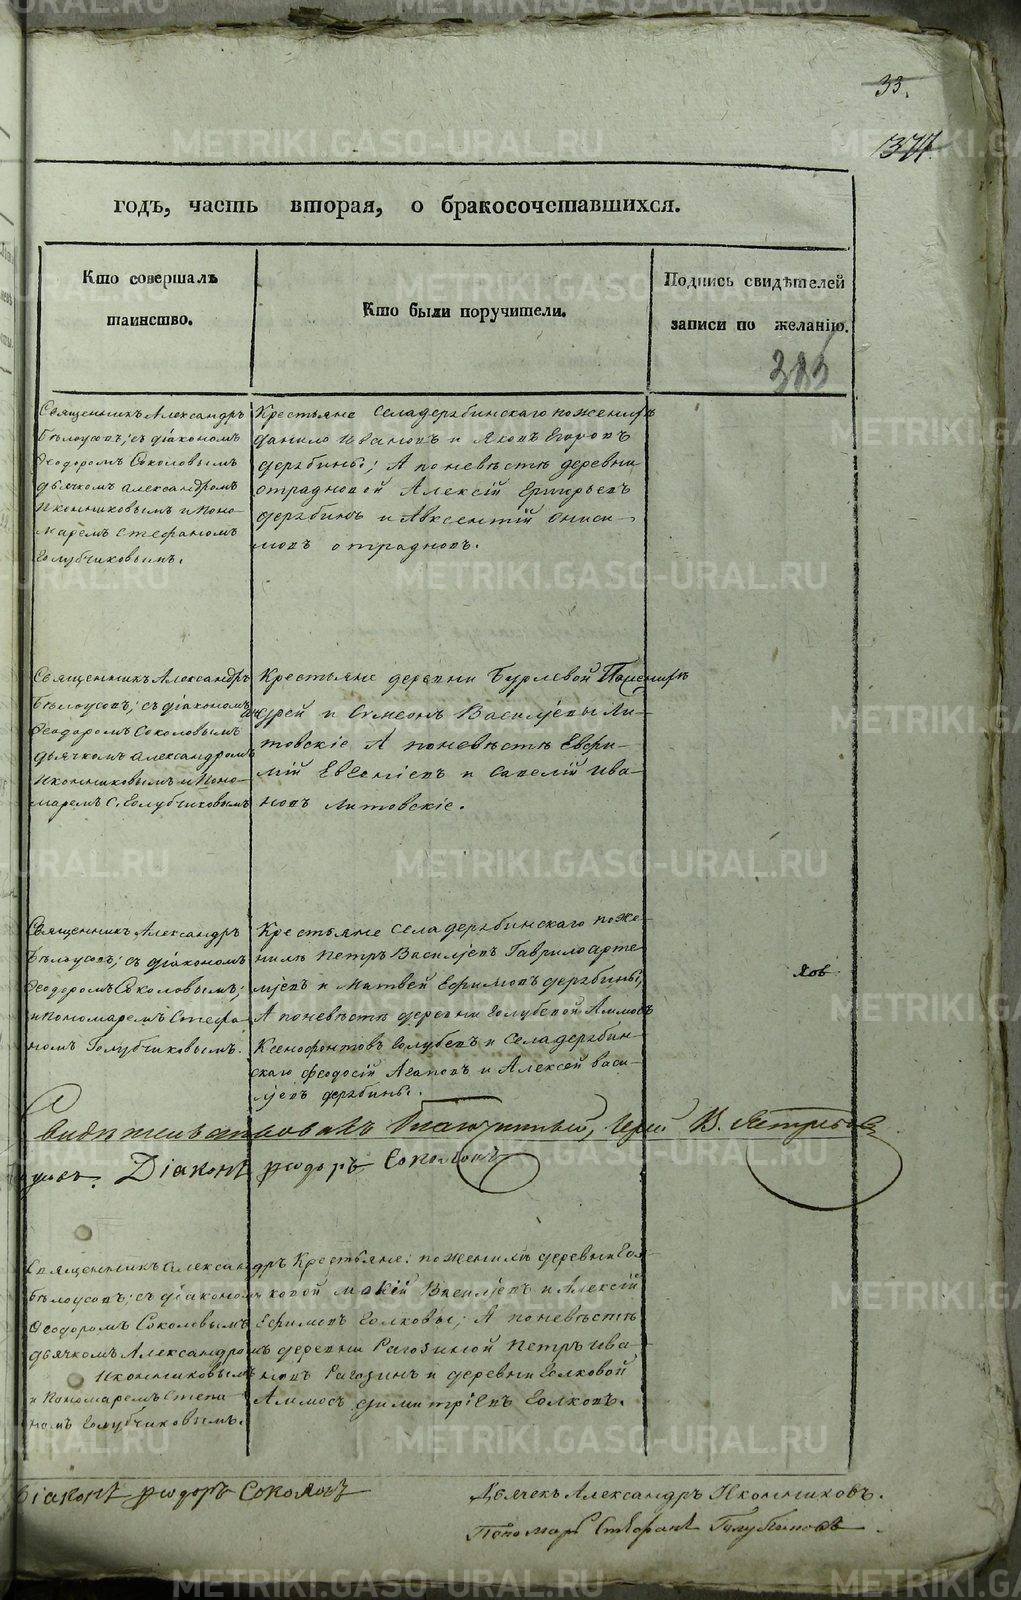 33.
годъ, часть вторая, о бракосочетавшихся.
Кто совершалъ
таинство.
Кто были поручители.
Подпись свидѣтелей
записи по желанію.
385
Священникъ Александръ
Бѣлоусовъ; съ діакономъ
Ѳеодоромъ Соколовымъ
дьячкомъ Александромъ
Иконниковымъ и поно-
маремъ Стефаномъ
Голубчиковымъ.
Крестьяне села дерябинскаго по женихѣ
данило Ивановъ и Яковъ Егоровъ
дерябины; А по невѣстѣ деревни
отрадновой Алексій Григорьевъ
дерябинъ и АвксентійОниси-
мовъ отрадновъ.
Священникъ Александръ
Бѣлоусовъ; съ діакономъ
Ѳеодоромъ Соколовымъ
дьячкомъ Александромъ
Иконниковымъ и поно-
маремъ С. Голубчиковымъ
Крестьяне деревни Бурлевой По женихѣ
Андрей и Симеонъ Васильевы Ли-
товскіе А по невѣстѣ Евфи-
мій Евгеніевъ и Савелій Ива-
новъ Литовскіе.
Священникъ Александръ
Бѣлоусовъ; съ діакономъ
Ѳеодоромъ Соколовымъ;
и пономаремъ Стефа-
номъ Голубчиковымъ.
Крестьяне села дерябинскаго по же-
нихѣ Петръ Васильевъ Гаврило Арте-
мьевъ и Матвей Ефимовъ дерябины;
А по невѣстѣ деревни Голубевой Аммосъ
Ксенофонтовъ Голубевъ и Села дерябин-
скаго Ѳеодосій Агаповъ и Алексей Васи-
льевъ дерябины.
Свидѣтельствовалъ Благочинный, Іерей В. Ястребов
Діаконъ Ѳеодоръ Соколовъ
Священникъ Александръ
Бѣлоусовъ; съ діакономъ
Ѳеодоромъ Соколовымъ
дьячкомъ Александромъ
Иконниковымъ
и Пономаремъ Степа-
номъ Голубчиковымъ.
Крестьяне: по женихѣ деревни Гол-
ковой Мокій Васильевъ и Алексій
Ефимовъ Голковы; А по невѣстѣ
деревни Рагозиной Петръ Ива-
новъ Рагозинъ и деревни Голковой
Аммосъ Димитріевъ Голковъ.
Діаконъ Ѳеодоръ Соколовъ
Дьячекъ Александръ Иконниковъ.
Пономарь Стефанъ Голубчиковъ
METRIKI.GASO-URAL.RU